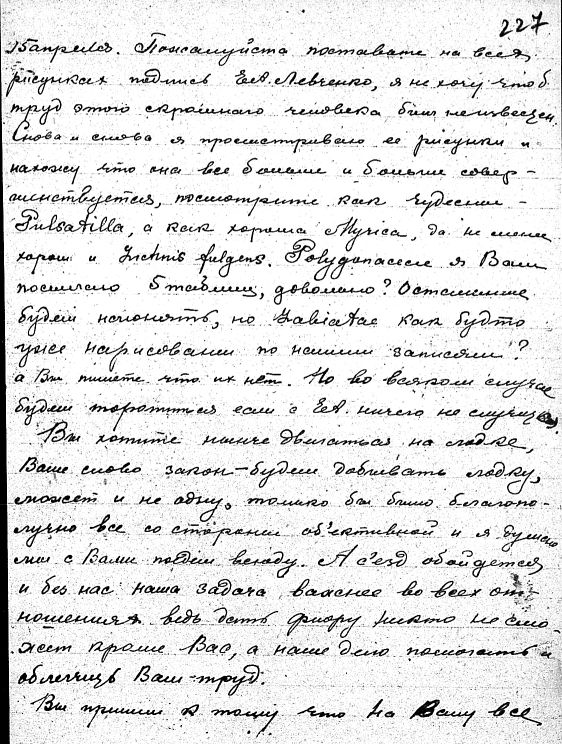 227
15 апреля. Пожалуйста поставьте на всех
рисунках подпись Е.А. Левченко, я не хочу чтоб
труд этого скромного человека был неизвестен.
Снова и снова я просматриваю ее рисунки и
нахожу что она все больше и больше совер-
шенствуется, посмотрите как чудесны -
Pulsatilla, а как хороша Myrica, да не менее
хорош и Lichnis fulgens. Polygonaceae я Вам
посылаю 5 таблиц, довольно? Остальные
будем исполнять, но Labiatae как будто
уже нарисованы по нашим записям?
а Вы пишете что их нет. Но во всяком случае
будем торопиться если с Е.А. ничего не случится.
Вы хотите нынче двигаться на лодке,
Ваше слово закон - будем добывать лодку,
может и не одну, только бы было благопо-
лучно все со стороны об'ективной и я
мы с Вами поедем всюду. А с'езд обойдется
и без нас наша задача важнее во всех от-
ношениях ведь дать флору никто не смо-
жет кроме Вас, а наше дело помогать и
облегчить Ваш труд.
Вы пришли к тому что на Вашу все